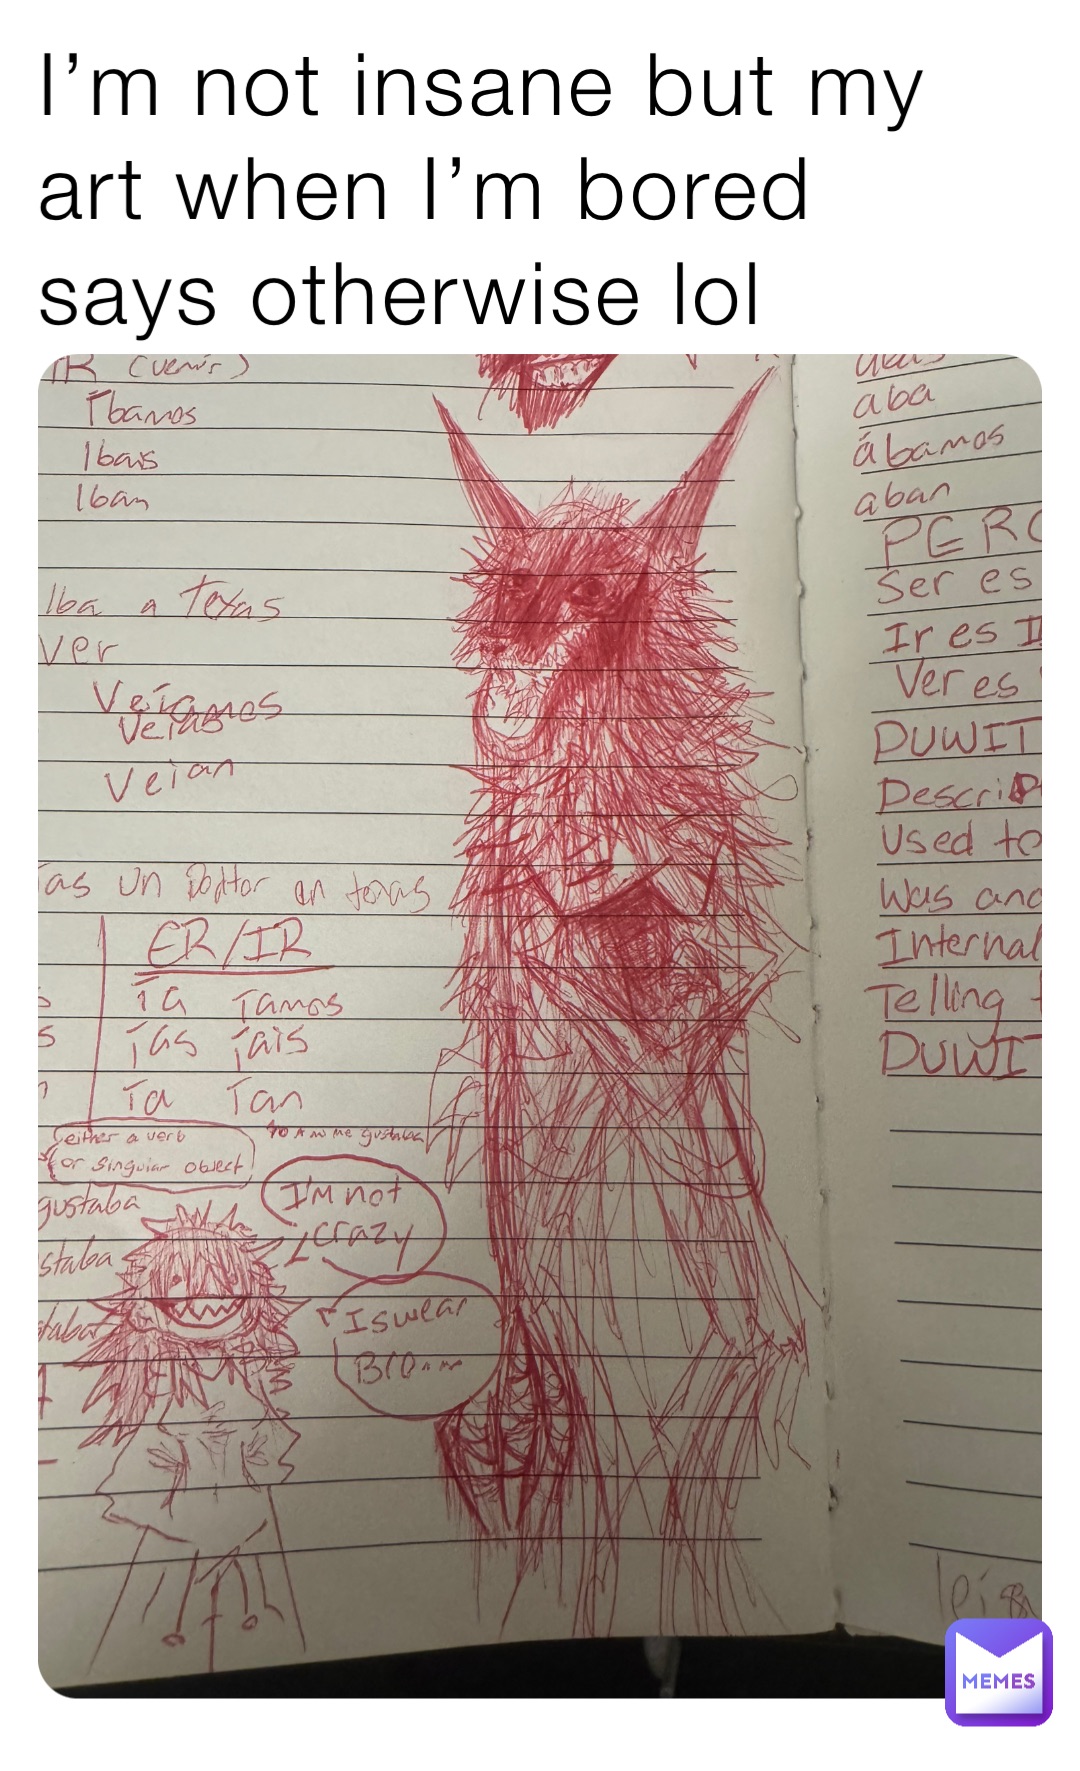 I’m not insane but my
art when I’m bored
says otherwise lol
IR (venir)
Íbamos
Ibais
Iban
Iba a Texas
ver
Veíamos
Veias
Veian
ías un en texas
ER/IR
Ía Íamos
Ías Íais
Ía Ían
either a verb
or singular object
me gustaba
gustaba
staba
I'M not
crazy
I swear
Bro
aba
ábamos
aban
PERO
Ser es
Ir es I
Ver es
DUWIT
Descrip
Used to
Was and
Internal
Telling
DUWIT
MEMES